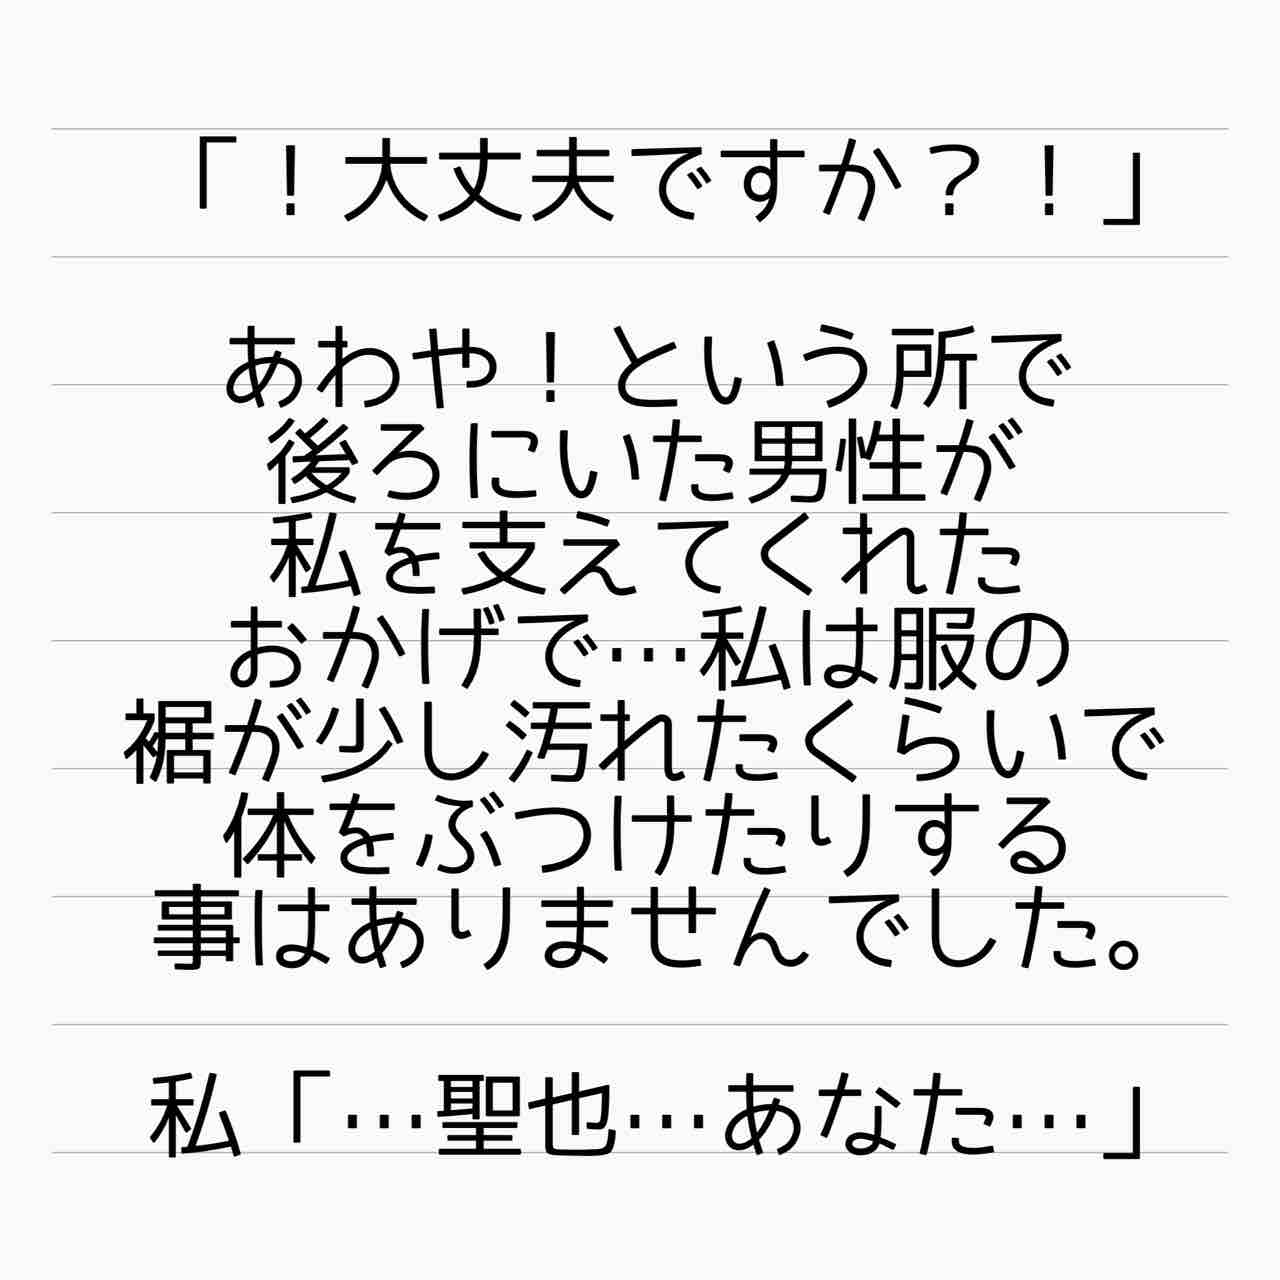 「！大丈夫ですか？！」
あわや！という所で
後ろにいた男性が
私を支えてくれた
おかげで…私は服の
裾が少し汚れたくらいで
体をぶつけたりする
事はありませんでした。
私「…聖也…あなた…」